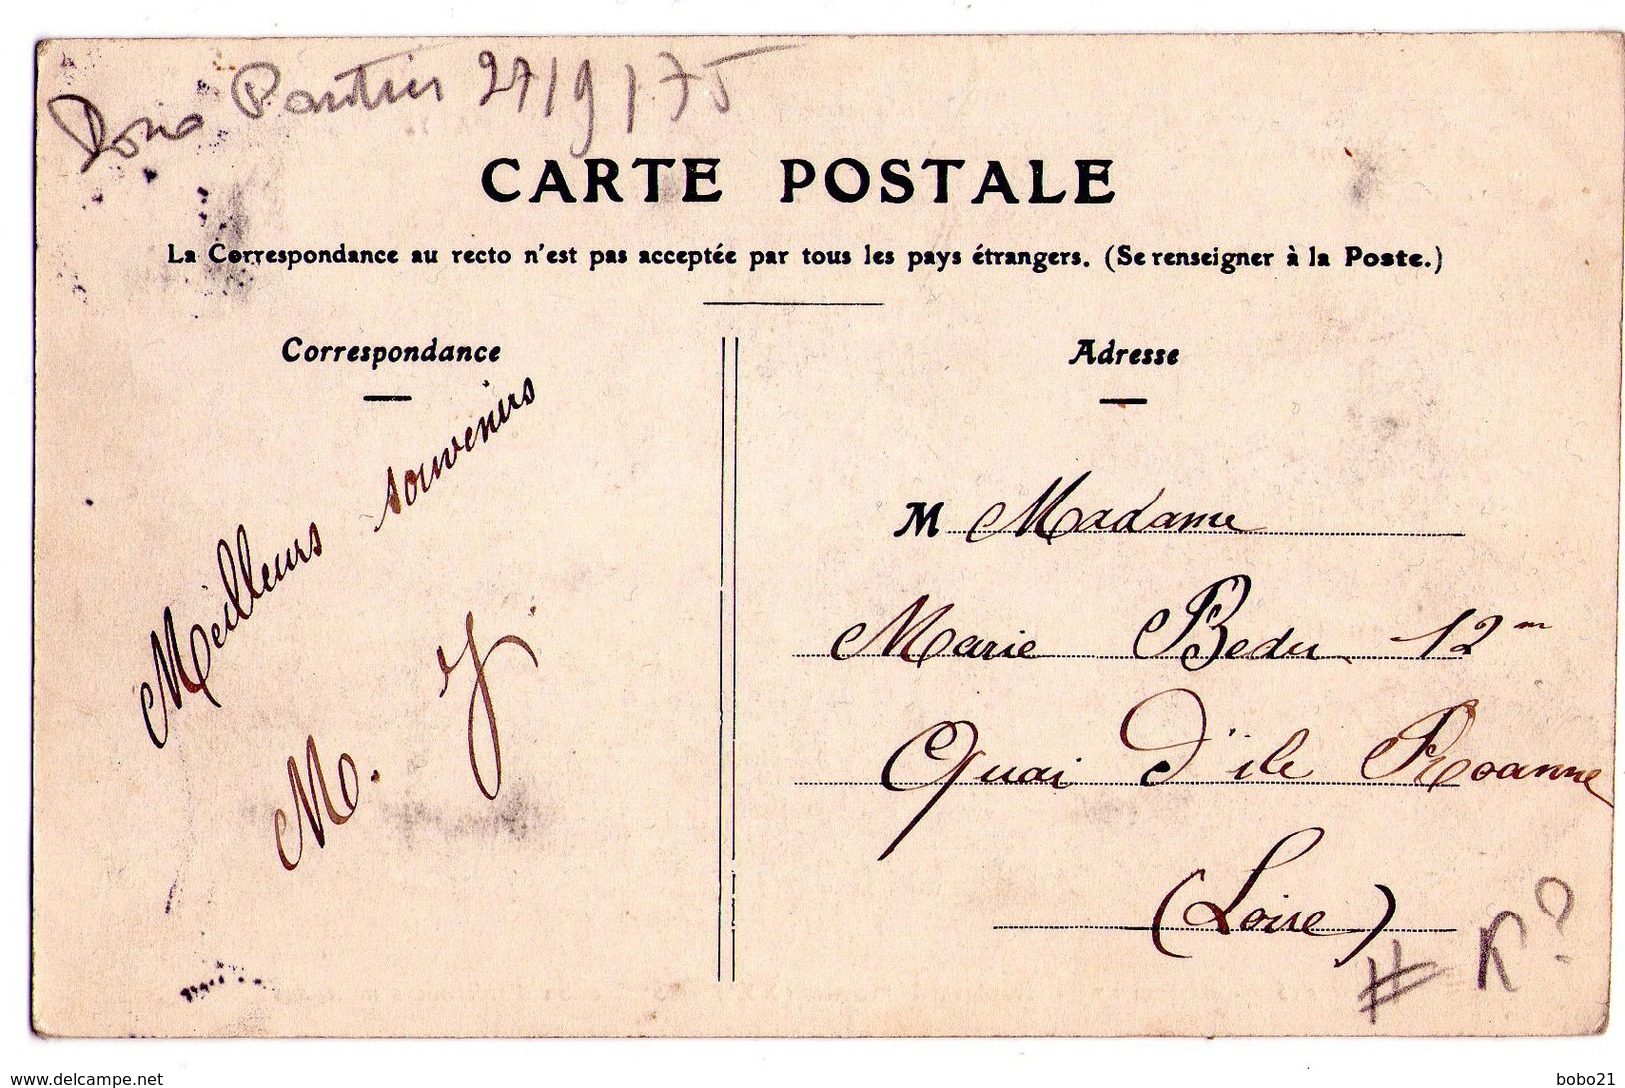 27/9/75
CARTE POSTALE
La Correspondance au recto n'est pas acceptée par tous les pays étrangers. (Se renseigner à la Poste.)
Correspondance
Meilleurs souvenirs
M. J.
Adresse
M Madame
Marie Bedu 12 m
Quai d'ile Roanne
(Loire)
# R?
www.delcampe.net
bobo21